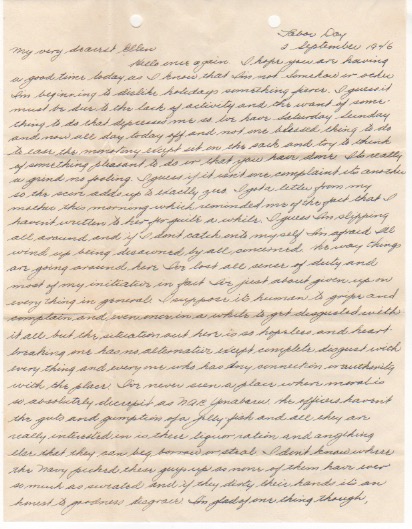 Labor Day
My very dearest Ellen 2 September 1946
Hello once again I hope you are having
a good time today as I know that I'm not Somehow or other
I'm beginning to dislike holidays something fierce. I guess it
must be due to the lack of activity and the want of some-
thing to do that depresses me so we have Saturday Sunday
and now all day today off and not one blessed thing to do
to ease the monotony except sit on the sack and try to think
of something pleasant to do or that you have done Its really
a grind no fooling. I guess if it isn't one complaint its another
so the score adds up to exactly zero I got a letter from my
mother this morning which reminded me of the fact that I
haven't written to her for quite a while. I guess I'm slipping
all around and if I don't catch onto myself I'm afraid Ill
wind up being disowned by all concerned the way things
are going around here I've lost all sense of duty and
most of my initiative in fact I've just about given up on
everything in general I suppose its human to gripe and
complain and even once in a while to get disgusted with
it all but the situation out here is so hopeless and heart
breaking one has no alternative except complete disgust with
everything and every one who has any connection or authority
with the place I've never seen a place where moral is
so absolutely decrepit as N.A.B. The officers havent
the guts and gumption of a jelly fish and all they are
really interested in is their liquor ration and anything
else that they can beg borrow or steal I don't know where
the Navy picked these guys up as none of them have ever
so much as sweated and if they dirty their hands its an
honest to goodness disgrace Im glad of one thing though,